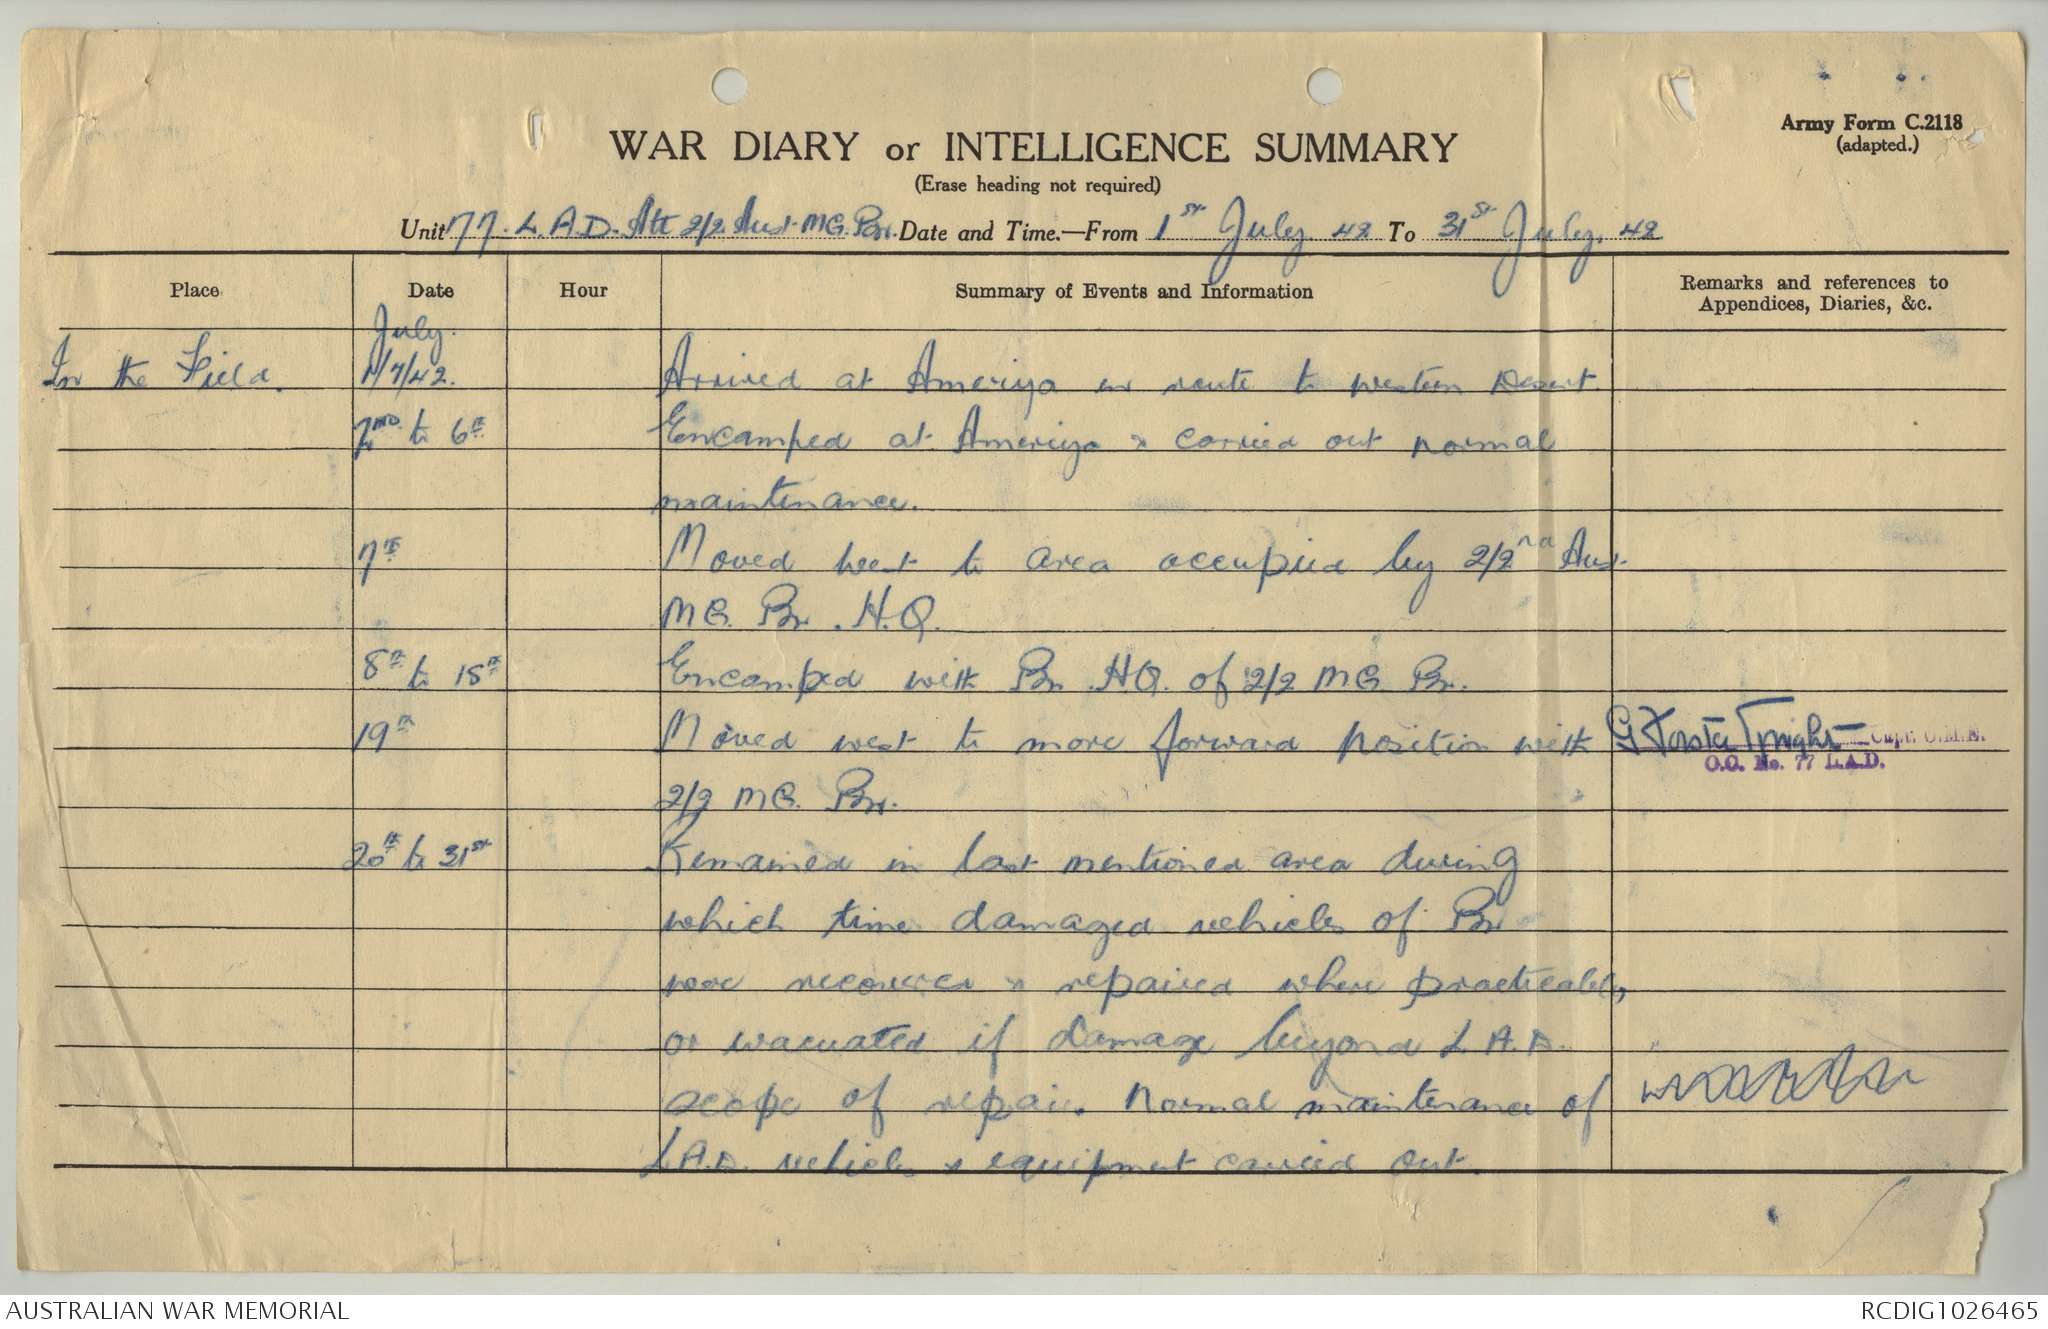 Army Form C.2118
(adapted.)
WAR DIARY or INTELLIGENCE SUMMARY
(Erase heading not required)
Unit 77. L.A.D. Att 2/2 Aust. M.G. Bn. Date and Time.—From 1st July. 42 To 31st July. 42
Place Date Hour Summary of Events and Information Remarks and references to
Appendices, Diaries, &c.
July.
In the Field. 1/7/42. Arrived at Ameriya en route to western Desert.
2nd to 6th Encamped at Ameriya & carried out normal
maintenance.
7th Moved west to area occupied by 2/2nd Aust.
MG. Bn. H.Q.
8th to 18th Encamped with Bn. HQ. of 2/2 MG Bn.
19th Moved west to more forward position with G Forster Capt. O.M.E.
O.O. No. 77 L.A.D.
2/2 MG. Bn.
20th to 31st Remained in last mentioned area during
which time damaged vehicles of Bn
were recovered & repaired where practicable,
or evacuated if damage beyond L.A.D.
scope of repair. Normal maintenance of
L.A.D. vehicles & equipment carried out.
AUSTRALIAN WAR MEMORIAL RCDIG1026465